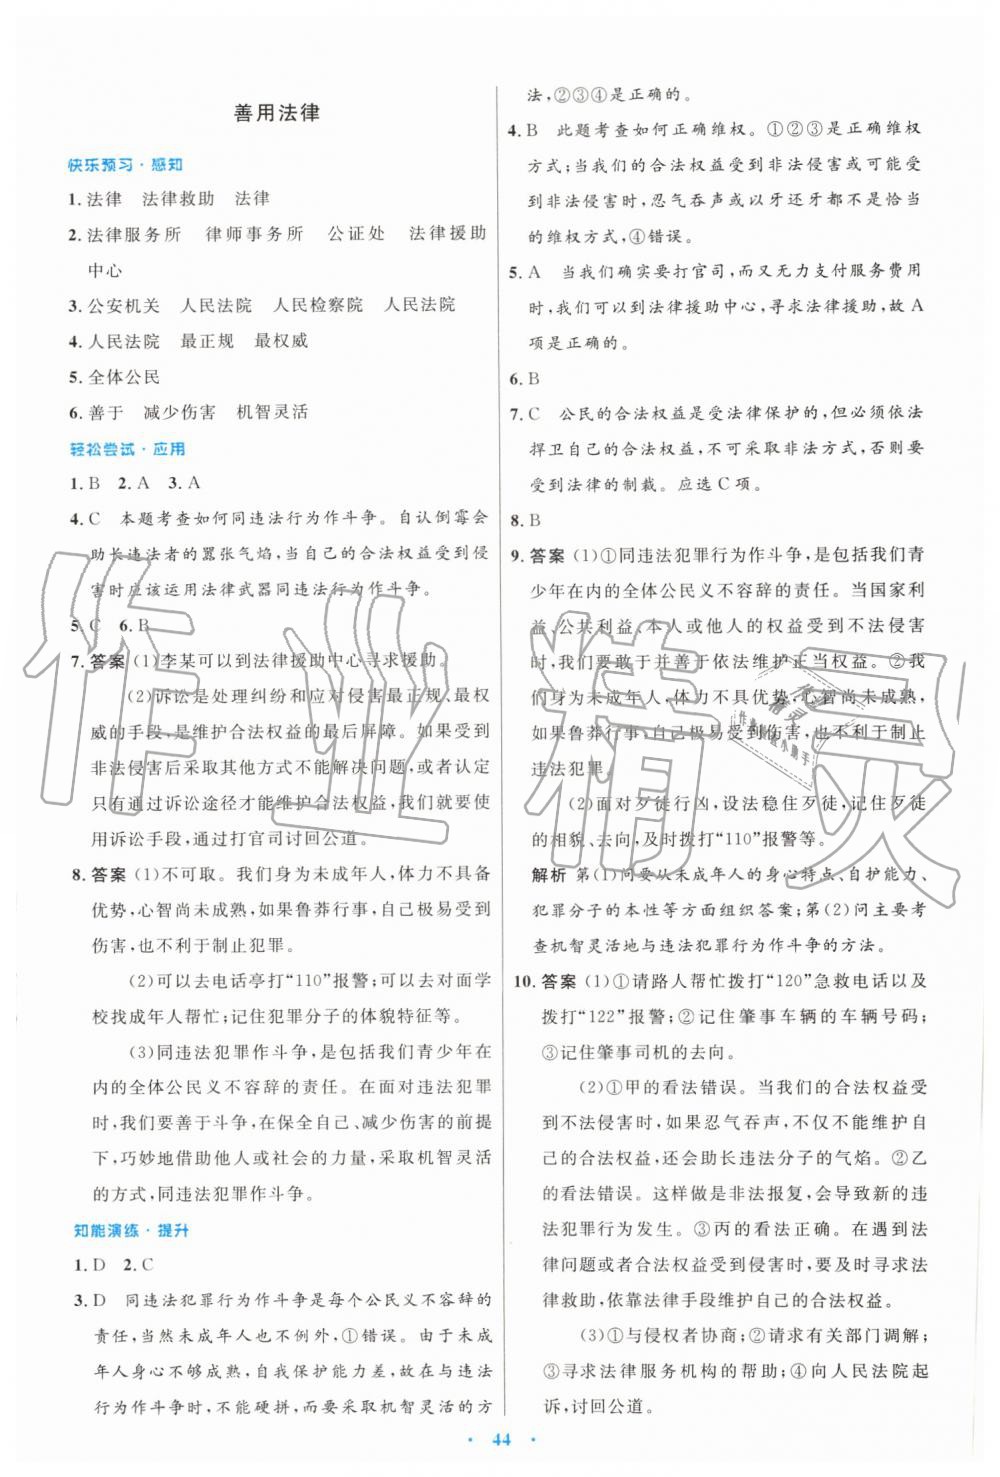 善用法律
快乐预习·感知
1.法律　法律救助　法律
2.法律服务所　律师事务所　公证处　法律援助
中心
3.公安机关　人民法院　人民检察院　人民法院
4.人民法院　最正规　最权威
5.全体公民
6.善于　减少伤害　机智灵活
轻松尝试·应用
1.B　2.A　3.A
4.C　本题考查如何同违法行为作斗争。自认倒霉会
助长违法者的嚣张气焰,当自己的合法权益受到侵
害时应该运用法律武器同违法行为作斗争。
5.C　6.B
7.答案 (1)李某可以到法律援助中心寻求援助。
(2)诉讼是处理纠纷和应对侵害最正规、最权
威的手段,是维护合法权益的最后屏障。如果受到
非法侵害后采取其他方式不能解决问题,或者认定
只有通过诉讼途径才能维护合法权益,我们就要使
用诉讼手段,通过打官司讨回公道。
8.答案 (1)不可取。我们身为未成年人,体力不具备
优势,心智尚未成熟,如果鲁莽行事,自己极易受到
伤害,也不利于制止犯罪。
(2)可以去电话亭打“110”报警;可以去对面学
校找成年人帮忙;记住犯罪分子的体貌特征等。
(3)同违法犯罪作斗争,是包括我们青少年在
内的全体公民义不容辞的责任。在面对违法犯罪
时,我们要善于斗争,在保全自己、减少伤害的前提
下,巧妙地借助他人或社会的力量,采取机智灵活
的方式,同违法犯罪作斗争。
知能演练·提升
1.D　2.C
3.D　同违法犯罪行为作斗争是每个公民义不容辞的
责任,当然未成年人也不例外,①错误。由于未成
年人身心不够成熟,自我保护能力差,故在与违法
行为作斗争时,不能硬拼,而要采取机智灵活的方
法,②③④是正确的。
4.B　此题考查如何正确维权。①②③是正确维权
方式;当我们的合法权益受到非法侵害或可能受
到非法侵害时,忍气吞声或以牙还牙都不是恰当
的维权方式,④错误。
5.A　当我们确实要打官司,而又无力支付服务费用
时,我们可以到法律援助中心,寻求法律援助,故A
项是正确的。
6.B
7.C　公民的合法权益是受法律保护的,但必须依法
捍卫自己的合法权益,不可采取非法方式,否则要
受到法律的制裁。应选C项。
8.B
9.答案 (1)①同违法犯罪行为作斗争,是包括我们青
少年在内的全体公民义不容辞的责任。当国家利
益、公共利益、本人或他人的权益受到不法侵害
时,我们要敢于并善于依法维护正当权益。②我
们身为未成年人,体力不具优势,心智尚未成熟,
如果鲁莽行事,自己极易受到伤害,也不利于制止
违法犯罪。
(2)面对歹徒行凶,设法稳住歹徒,记住歹徒
的相貌、去向,及时拨打“110”报警等。
解析 第(1)问要从未成年人的身心特点、自护能力、
犯罪分子的本性等方面组织答案;第(2)问主要考
查机智灵活地与违法犯罪行为作斗争的方法。
10.答案 (1)①请路人帮忙拨打“120”急救电话以及
拨打“122”报警;②记住肇事车辆的车辆号码;
③记住肇事司机的去向。
(2)①甲的看法错误。当我们的合法权益受
到不法侵害时,如果忍气吞声,不仅不能维护自己
的合法权益,还会助长违法分子的气焰。②乙
的看法错误。这样做是非法报复,会导致新的违
法犯罪行为发生。③丙的看法正确。在遇到法
律问题或者合法权益受到侵害时,要及时寻求法
律救助,依靠法律手段维护自己的合法权益。
(3)①与侵权者协商;②请求有关部门调解;
③寻求法律服务机构的帮助;④向人民法院起
诉,讨回公道。
44
作业精灵